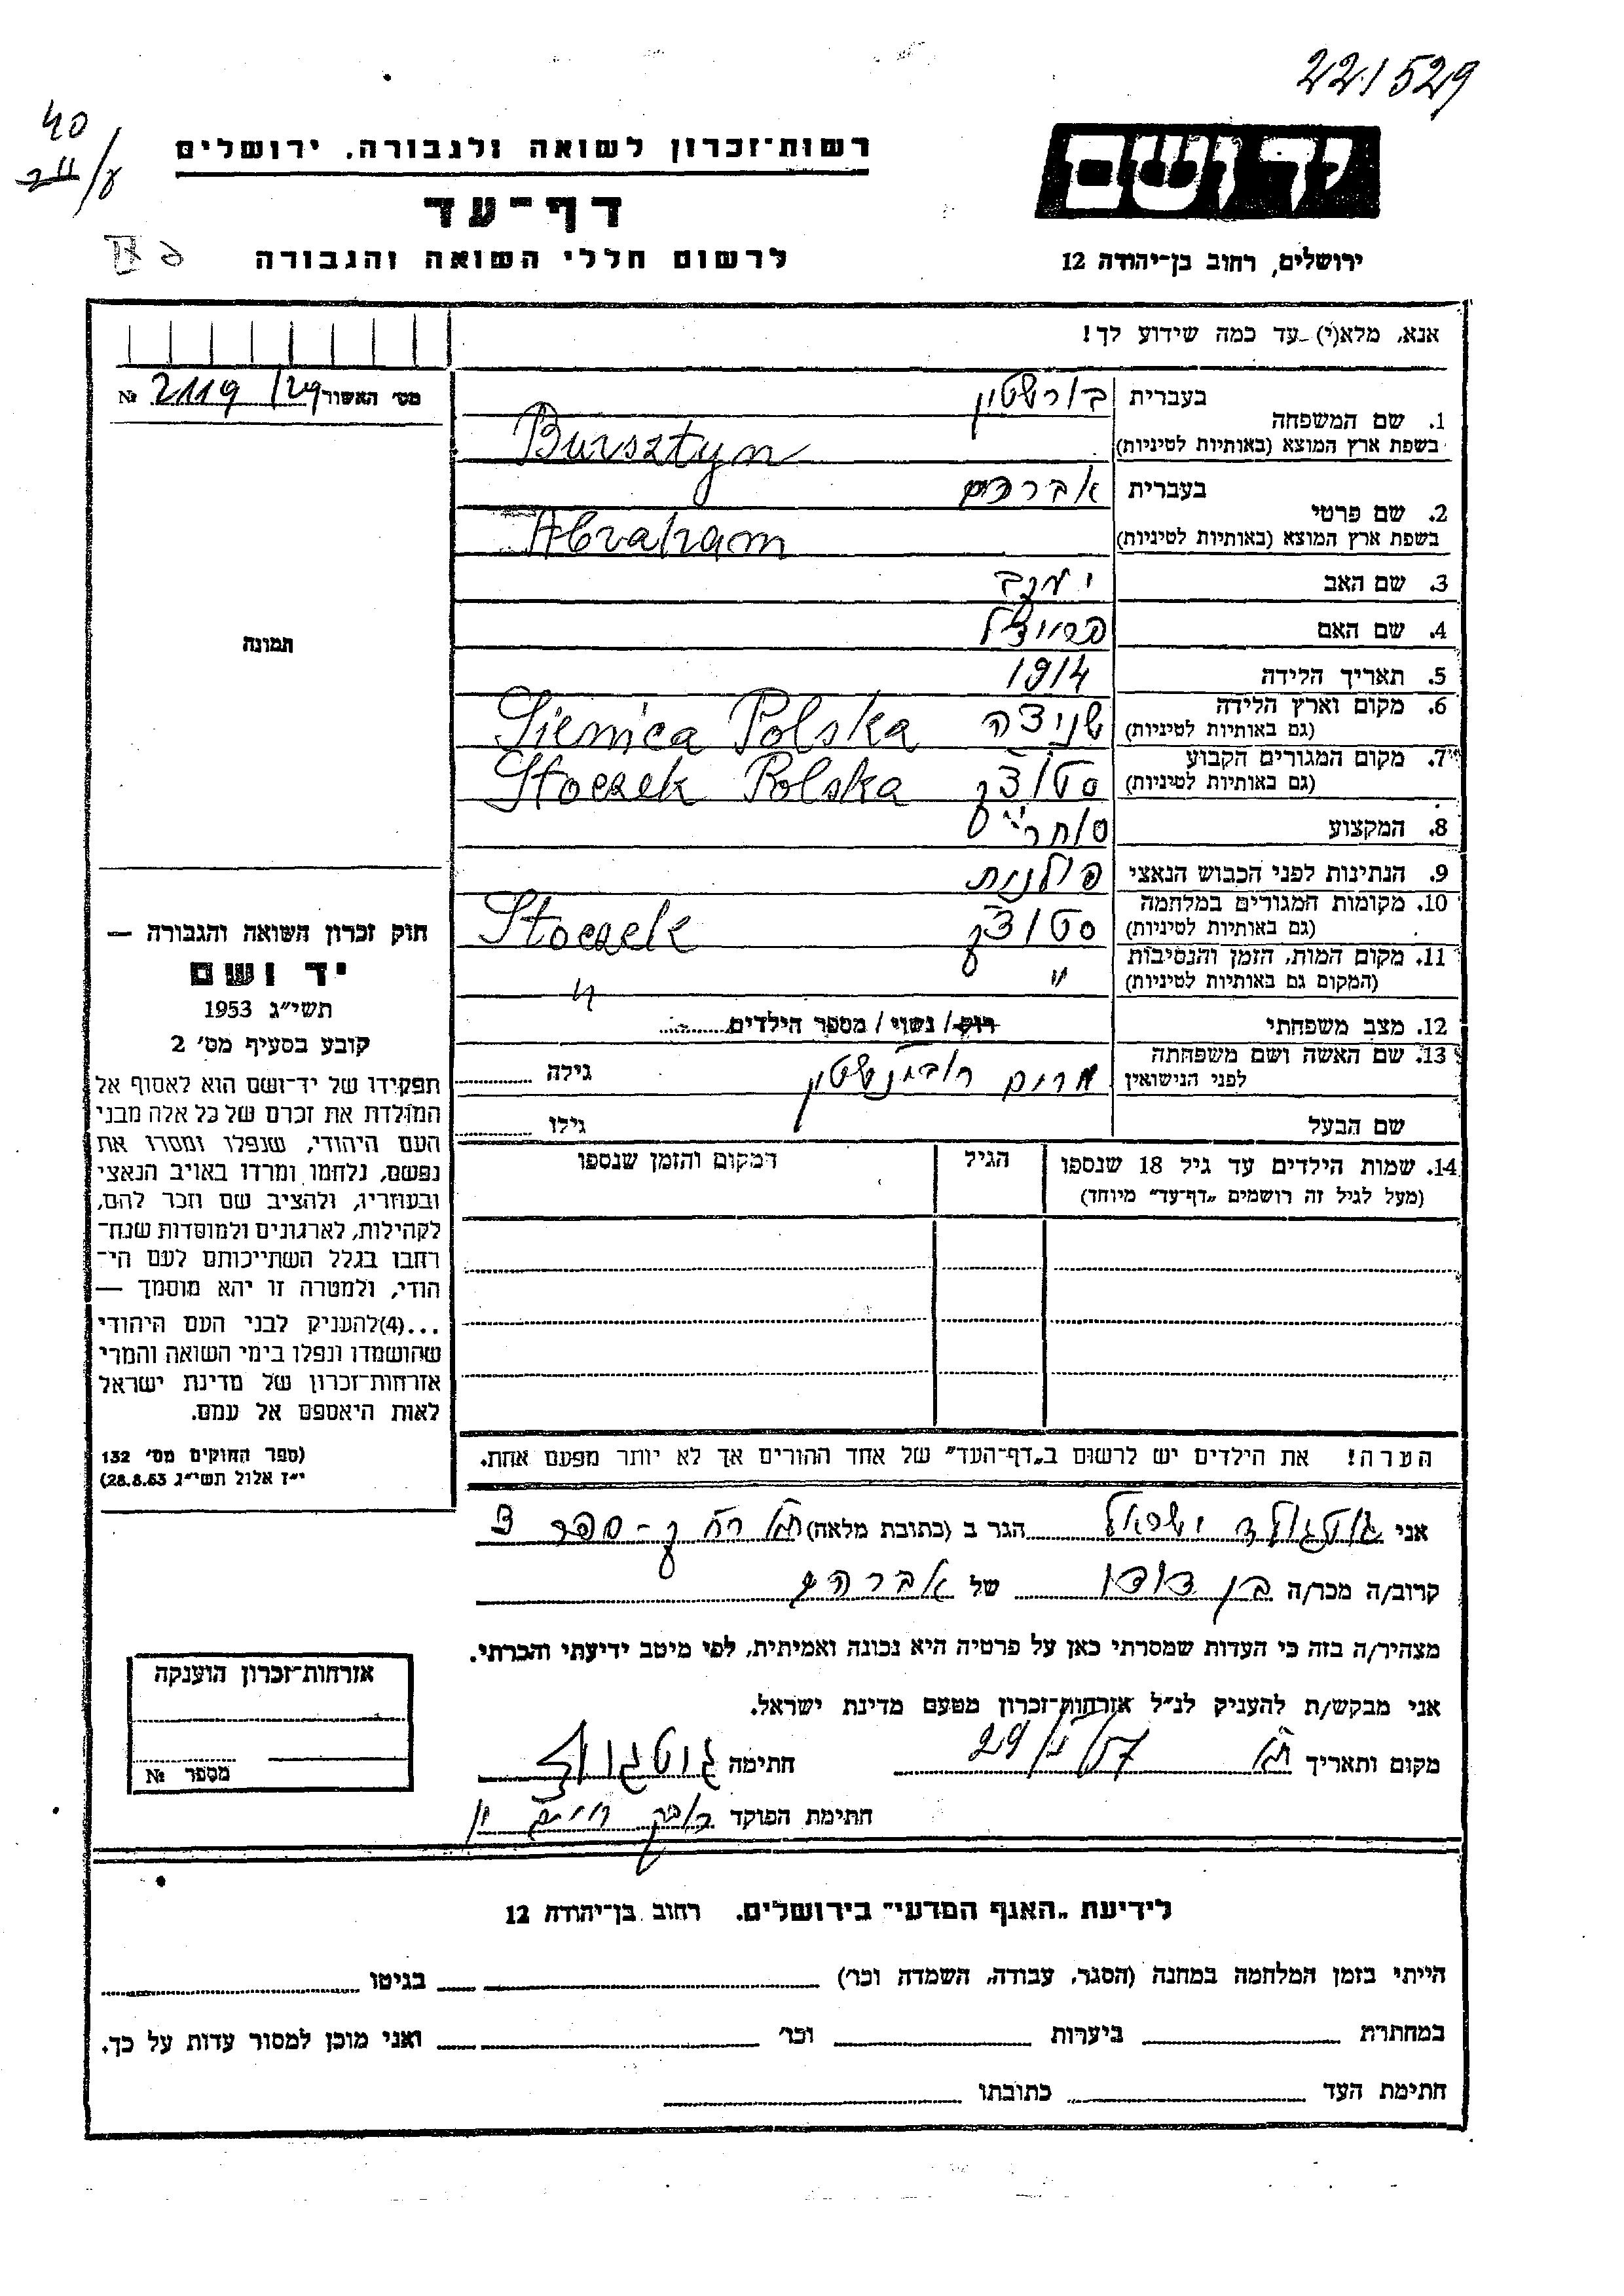 221529
40
רשות־זכרון לשואה ולגבורה, ירושלים
דף־עד
לרשום חללי השואה והגבורה
יד ושם
ירושלים, רחוב בן־יהודה 12
אנא, מלא(י) עד כמה שידוע לך!
מס׳ האשור 2119/29 №
1. שם המשפחה בעברית בורשטין
בשפת ארץ המוצא (באותיות לטיניות) Bursztyn
2. שם פרטי בעברית אברהם
בשפת ארץ המוצא (באותיות לטיניות) Abraham
3. שם האב יעקב
4. שם האם פריידל
5. תאריך הלידה 1914
6. מקום וארץ הלידה (גם באותיות לטיניות) שניצה Sienica Polska
7. מקום המגורים הקבוע (גם באותיות לטיניות) סטוצק Stoczek Polska
8. המקצוע סוחר
9. הנתינות לפני הכבוש הנאצי פולנית
10. מקומות המגורים במלחמה (גם באותיות לטיניות) סטוצק Stoczek
11. מקום המות, הזמן והנסיבות (המקום גם באותיות לטיניות) " "
12. מצב משפחתי רוק/ נשוי / מספר הילדים
13. שם האשה ושם משפחתה לפני הנישואין מרים רובינשטין גילה
שם הבעל גילו
14. שמות הילדים עד גיל 18 שנספו הגיל המקום והזמן שנספו
(מעל לגיל זה רושמים „דף־עד" מיוחד)
הערה! את הילדים יש לרשום ב„דף־העד" של אחד ההורים אך לא יותר מפעם אחת.
תמונה
חוק זכרון השואה והגבורה —
יד ושם
תשי״ג 1953
קובע בסעיף מס׳ 2
תפקידו של יד־ושם הוא לאסוף אל
המולדת את זכרם של כל אלה מבני
העם היהודי, שנפלו ומסרו את
נפשם, נלחמו ומרדו באויב הנאצי
ובעוזריו, ולהציב שם וזכר להם,
לקהילות, לארגונים ולמוסדות שנח־
רחבו בגלל השתייכותם לעם הי־
הודי, ולמטרה זו יהא מוסמך —
...(4)להעניק לבני העם היהודי
שהושמדו ונפלו בימי השואה והמרי
אזרחות־זכרון של מדינת ישראל
לאות היאספם אל עמם.
(ספר החוקים מס׳ 132
י״ז אלול תשי״ג 28.8.53)
אני גוטגולד ישראל הגר ב (כתובת מלאה)
קרוב/ה מכר/ה בן דודו של אברהם
מצהיר/ה בזה כי העדות שמסרתי כאן על פרטיה היא נכונה ואמיתית, לפי מיטב ידיעתי והכרתי.
אני מבקש/ת להעניק לנ״ל אזרחות־זכרון מטעם מדינת ישראל.
מקום ותאריך חתימה גוטגולד
חתימת הפוקד
אזרחות־זכרון הוענקה
מספר №
לידיעת „האגף המדעי" בירושלים. רחוב בן־יהודה 12
הייתי בזמן המלחמה במחנה (הסגר, עבודה, השמדה וכר׳) בגיטו
במחתרת ביערות וכר׳ ואני מוכן למסור עדות על כך.
חתימת העד כתובתו